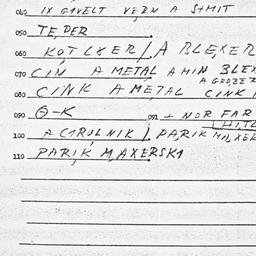 040 IX GAVELT VERN A SHMIT
050 TEPER
060 KOTLYER / A BLEXER
070 CIN A METAL A MIN BLEX
A GROBER
080 CINK A METAL CINK
090 O-K 091 + NOR FAR
HITL
100 A CIRULNIK / PARIK MAXER
110 PARIK MAXERSKI